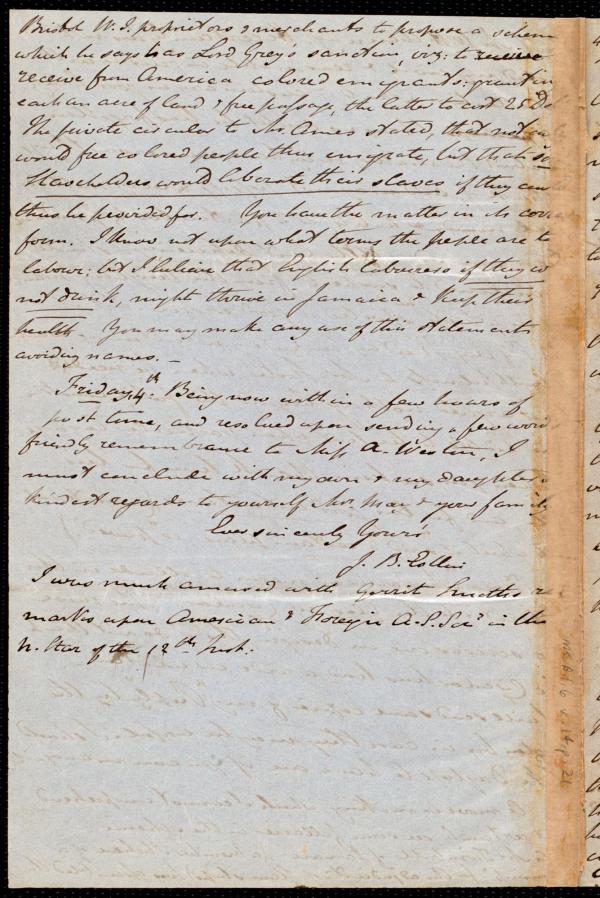 Bristol W. I. proprietors & merchants to propose a schem
which he says has Lord Grey's sanction, viz: to receive
receive from America colored emigrants: grantin
each an acre of land & free passage, the latter to cost 25 Dol
The private circular to Mr. Ames stated, that not on
would free colored people thus emigrate, but that so
Slaveholders would liberate their slaves if they can
thus be provided for. You have the matter in its
form. I know not upon what terms the people are to
labour; but I believe that English labourers if they
not drink, might thrive in Jamaica & keep their
health You may make any use of this statements
avoiding names. —
Friday 4th. Being now within a few hours of
post time, and resolved upon sending a few word
friendly remembrance to Miss A. Weston, I
must conclude with my own & my daughter
kindest regards to yourself Mr. May & your family
Ever sincerely Yours
J. B. Estlin
I was much amused with Gerrit Smith's re
marks upon American & Foreign A. S. Soc'y in the
N. Star of the 12th Inst.
Ms. B.1.6 v.14, p.21